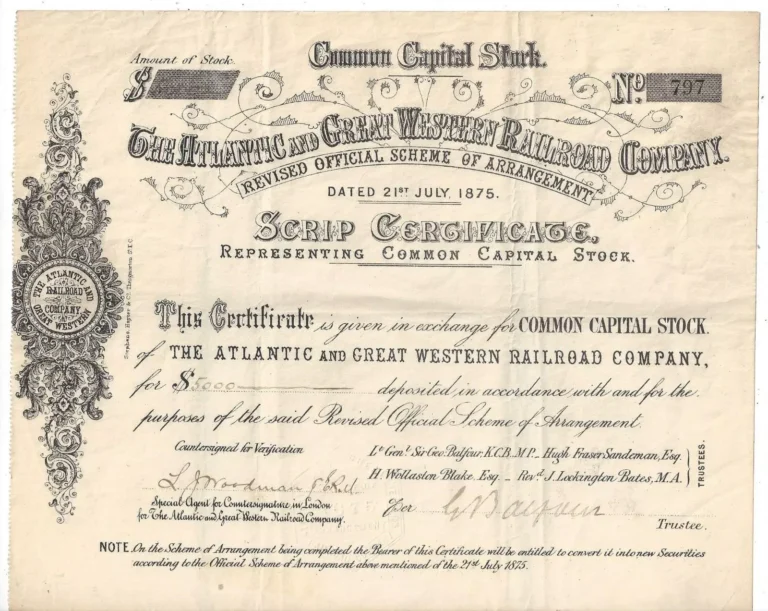 Common Capital Stock.
Amount of Stock.
$
No. 797
THE ATLANTIC AND GREAT WESTERN RAILROAD COMPANY.
REVISED OFFICIAL SCHEME OF ARRANGEMENT
DATED 21ST JULY, 1875.
SCRIP CERTIFICATE,
REPRESENTING COMMON CAPITAL STOCK.
THE ATLANTIC AND
GREAT WESTERN
RAILROAD
COMPANY
This Certificate is given in exchange for COMMON CAPITAL STOCK.
of THE ATLANTIC AND GREAT WESTERN RAILROAD COMPANY,
for $5000 deposited in accordance with and for the
purposes of the said Revised Official Scheme of Arrangement.
Countersigned for Verification
Lt. Genl. Sir Geo. Balfour, K.C.B., M.P. _ Hugh Fraser Sandeman, Esq.
H. Wollaston Blake, Esq. _ Revd. J. Lockington Bates, M.A.
TRUSTEES.
L. J. Woodman
Special Agent for Countersignature in London
for The Atlantic and Great Western Railroad Company.
Per G Balfour
Trustee.
NOTE. On the Scheme of Arrangement being completed the Bearer of this Certificate will be entitled to convert it into new Securities
according to the Official Scheme of Arrangement above mentioned of the 21st July 1875.